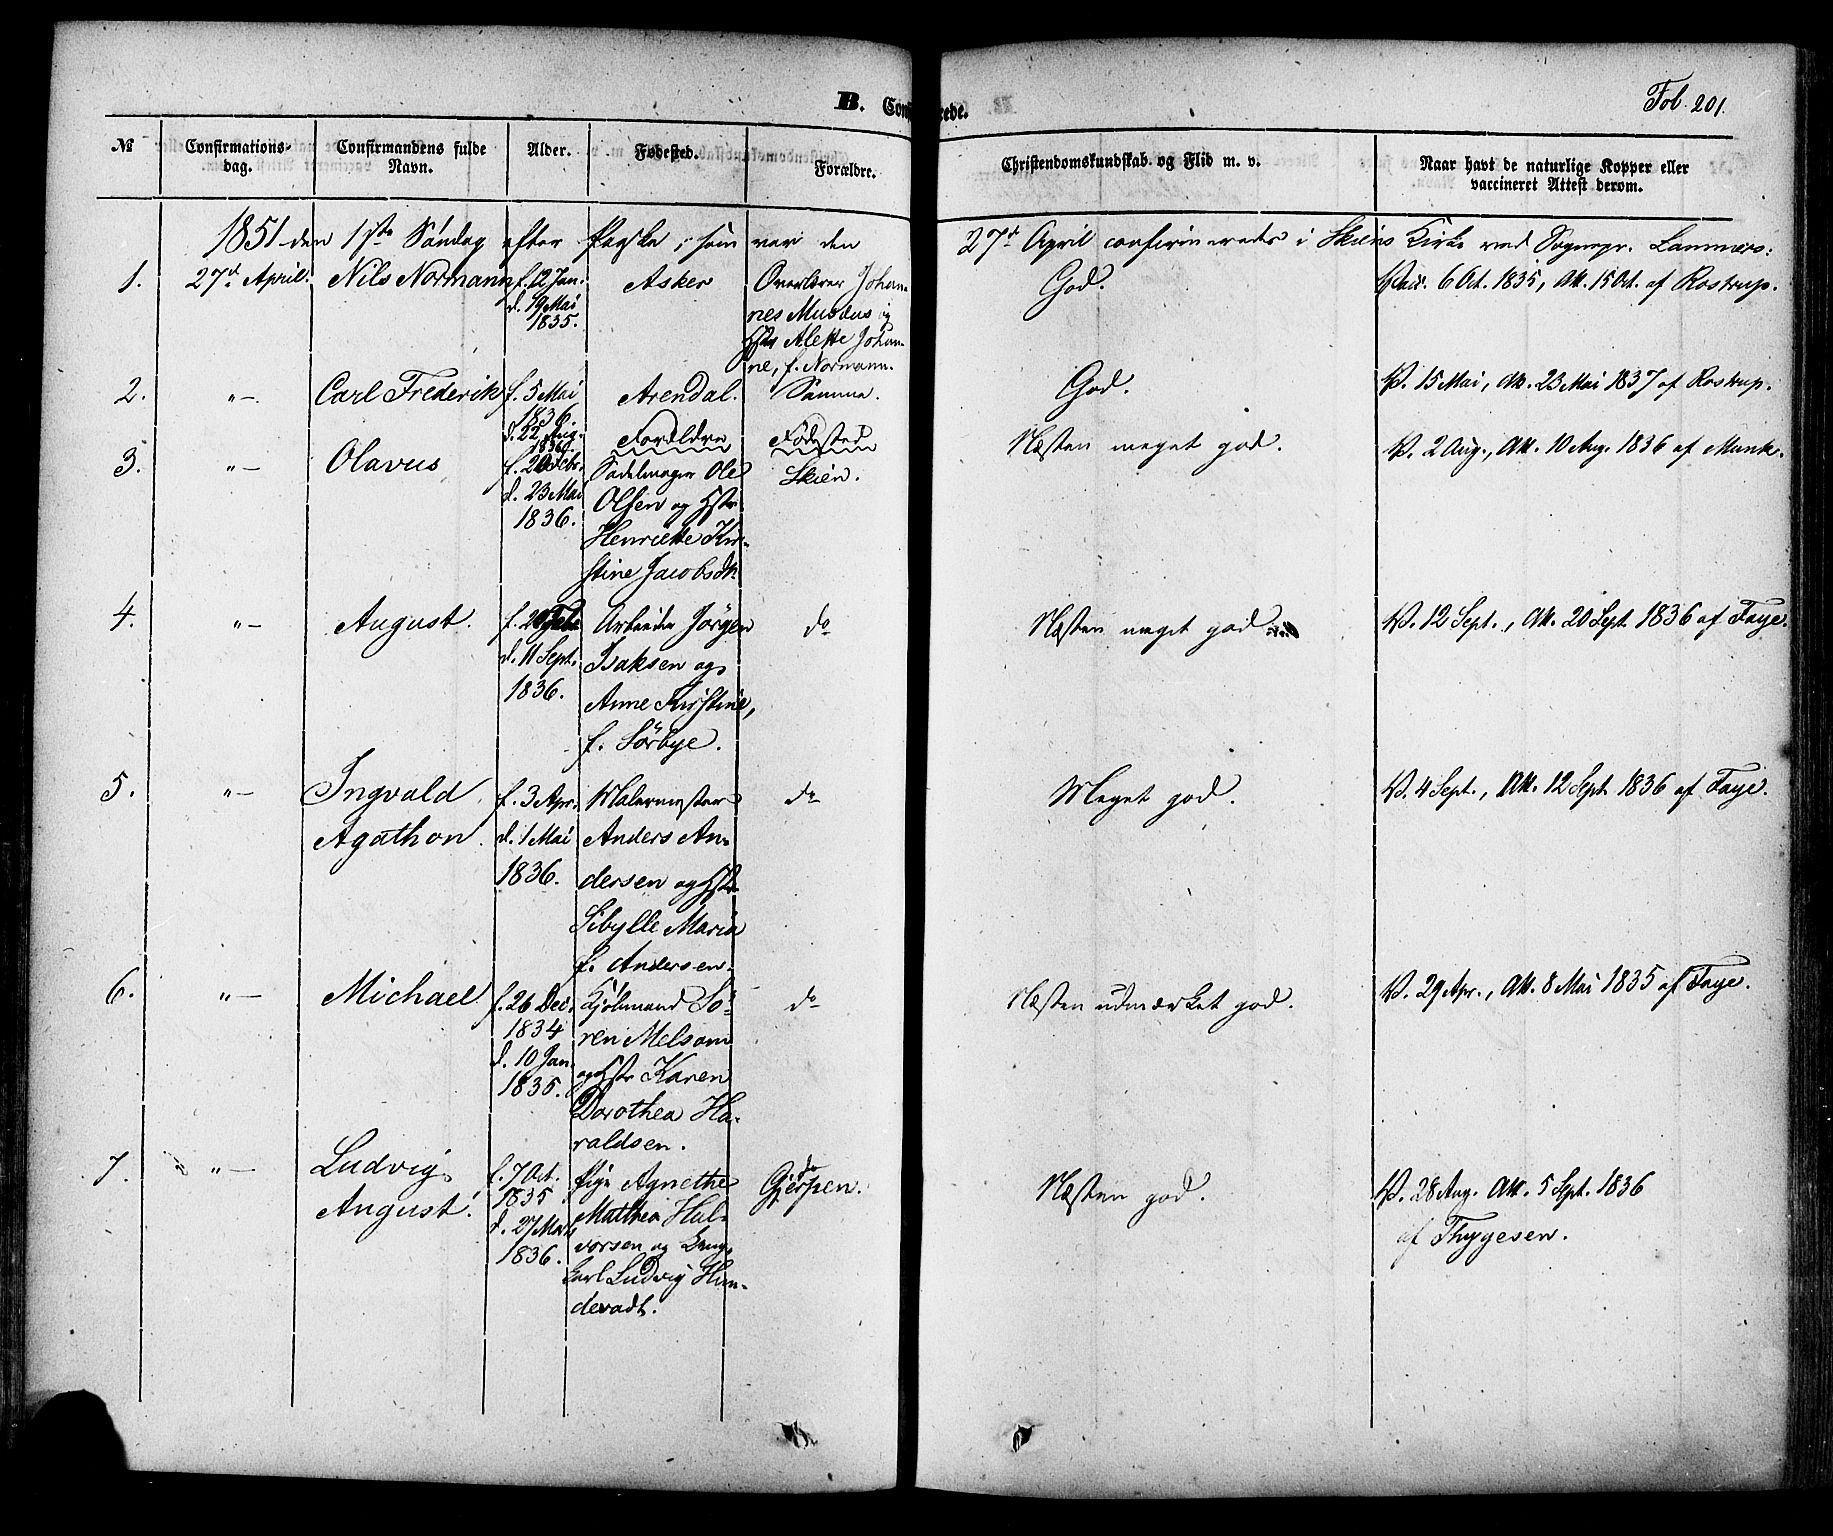 B. Confirmerede.
Fol. 201.
№ Confirmations-dag. Confirmandens fulde Navn. Alder. Fødested. Forældre. Christendomskundskab og Flid m. v. Naar havt de naturlige Kopper eller vaccineret Attest derom.
1851 den 1ste Søndag efter Paaske, som var den 27de April confirmerede i Skiens Kirke ved Sognepr. Lammers:
1. 27d April. Nils Normann
f. 12 Jan.
d. 19 Mai
1835.
Asker
Johan-
nes Musæus og
Hstr Alette Johan-
ne, f. Normann.
God.
Vac. 6 Oct. 1835, Att. 15 Oct. af Rostrup.
2. "— Carl Frederik
f. 5 Mai
1836
d. 22 Aug.
1836.
Arendal.
Samme.
God.
V. 15 Mai, Att. 23 Mai 1837 af Rostrup.
Forældre Fødested
3. "— Olavus
f. 20 Febr.
d. 23 Mai
1836.
Sadelmager Ole
Olsen og Hstr
Henriette Kir-
stine Jacobsdtr
Skien.
Næsten meget god.
V. 2 Aug., Att. 10 Aug. 1836 af Munk.
4. "— August.
f. 20 Febr
d. 11 Sept.
1836.
Arbeider Jørgen
Isaksen og
Anne Kirstine,
f. Sörbye.
do
Næsten meget god.
V. 12 Sept., Att. 20 Sept. 1836 af Faye.
5. "— Ingvald
Agathon.
f. 3 Apr.
d. 1 Mai
1836.
Malermester
Anders An-
dersen og Hstr
Sibylle Maria
f. Andersen.
do
Meget god.
V. 4 Sept., Att. 12 Sept. 1836 af Faye.
6. "— Michael
f. 26 Dec.
1834
d. 10 Jan.
1835.
Kjøbmand Sö-
ren Melsom
og Hstr Karen
Dorothea Ha-
raldsen.
do
Næsten udmærket god.
V. 29 Apr., Att. 8 Mai 1835 af Faye.
7. "— Ludvig
August.
f. 7 Oct.
1835
d. 27 Marts
1836.
Pige Agnethe
Mathea Hal-
vorsen og Ung.
Carl Ludvig Hun-
devadt.
do
Gjerpen.
Næsten god.
V. 28 Aug. Att. 5 Sept. 1836
af Thygesen.